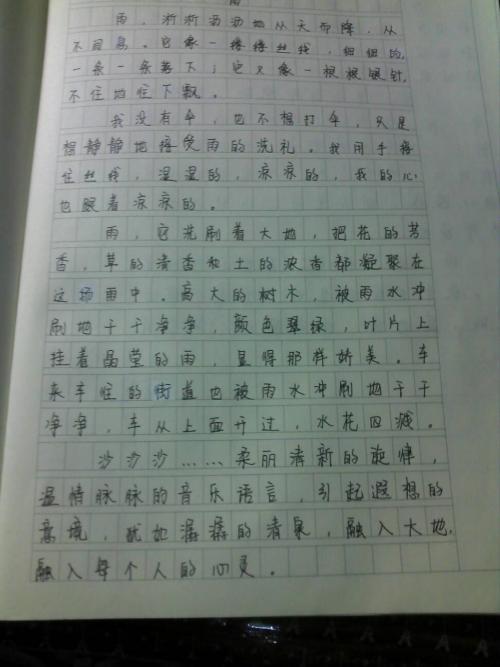 雨
雨，淅淅沥沥地从天而降，从
不同意。它像一缕缕丝线，细细的，
一条一条落下；它又像一根根银针，
不住地往下飘。
我没有伞，也不想打伞，只是
想静静地接受雨的洗礼。我用手接
住丝线，湿湿的，凉凉的，我的心
也跟着凉凉的。
雨，它洗刷着大地，把花的芳
香，草的清香和土的浓香都凝聚在
这场雨中。高大的树木，被雨水冲
刷地干干净净，颜色翠绿，叶片上
挂着晶莹的雨，显得那样娇美。车
来车往的街道也被雨水冲刷地干干
净净，车从上面开过，水花四溅。
沙沙沙……柔丽清新的旋律，
温情脉脉的音乐语言，引起遐想的
意境，犹如潺潺的清泉，融入大地，
融入每个人的心灵。